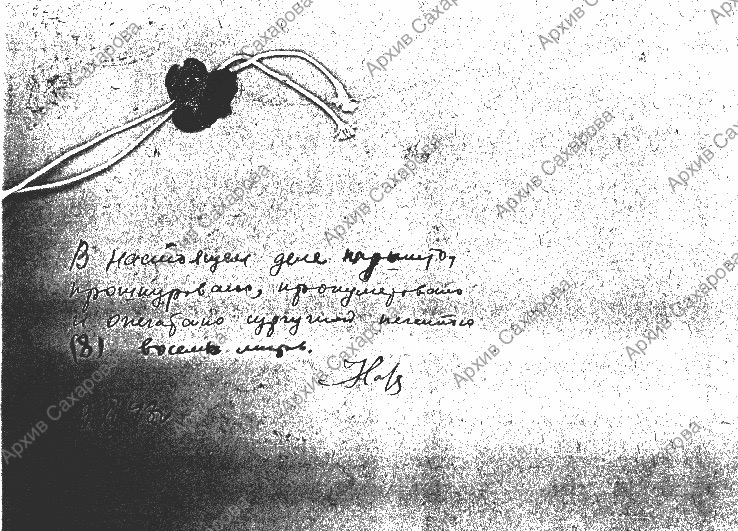 В настоящем деле подшито,
прошнуровано, пронумеровано
и опечатано сургучной печатью
(8) восемь листов.
Архив Сахарова